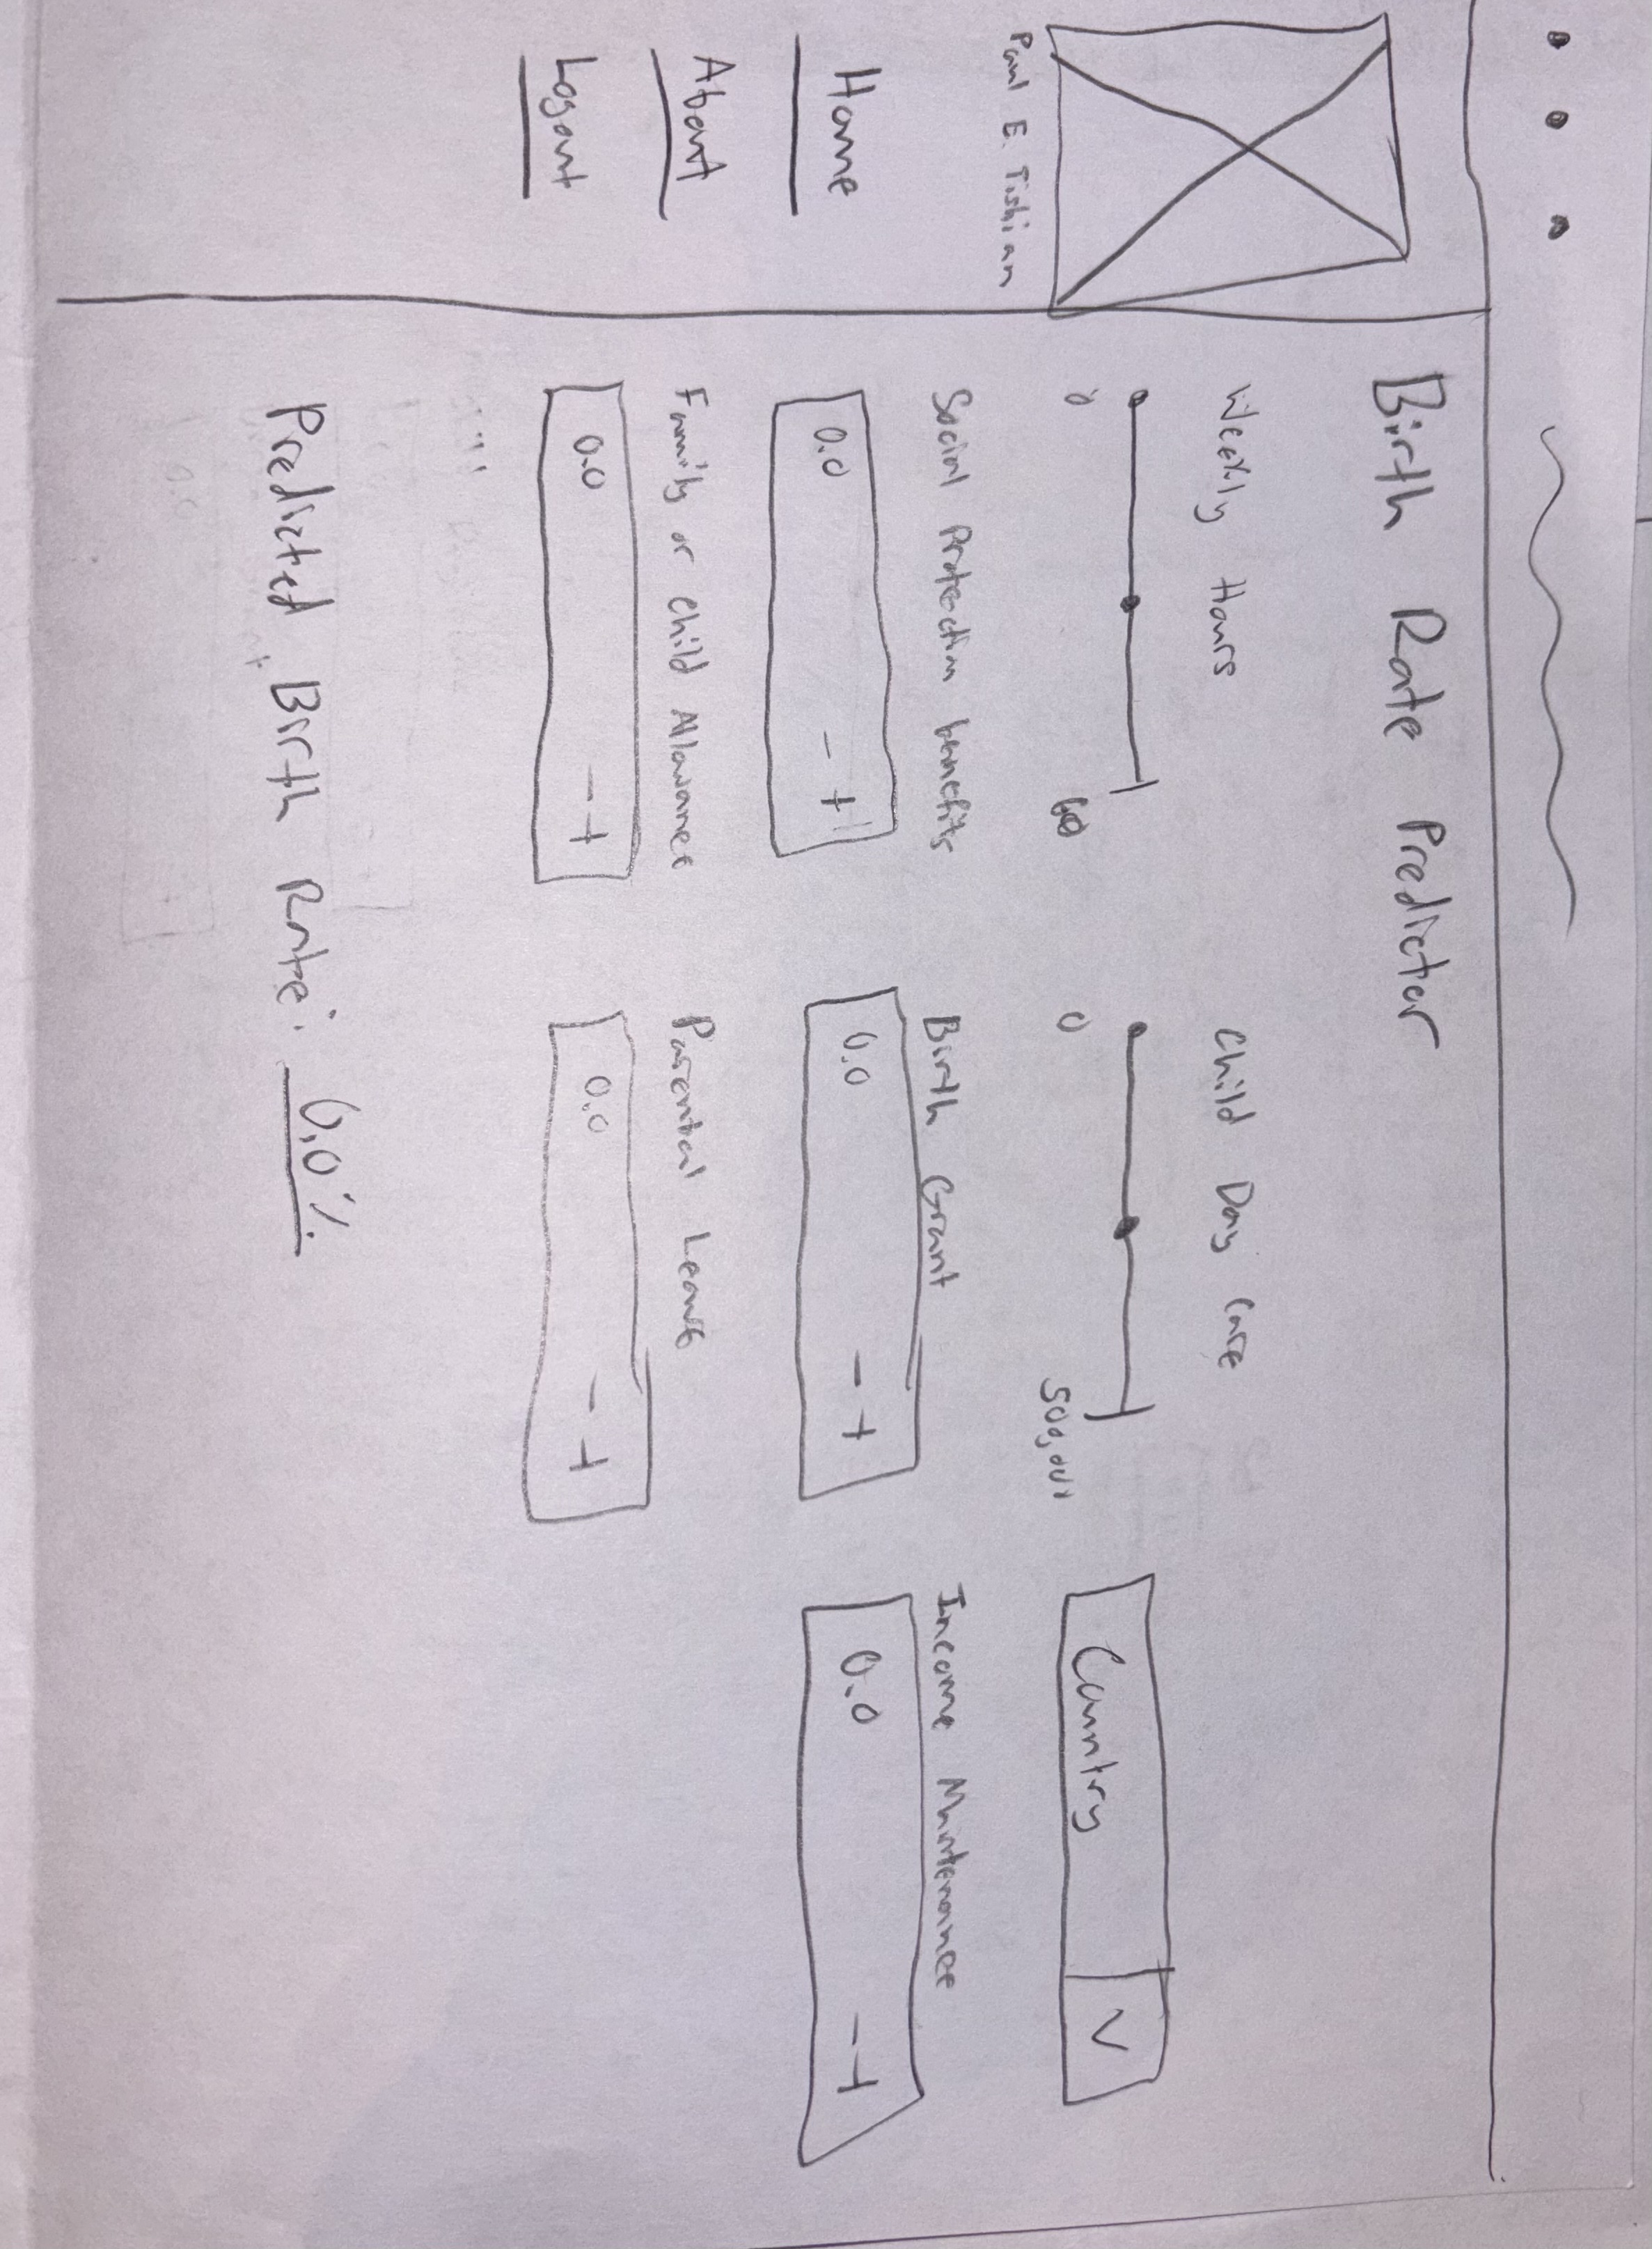 Paul E. Tishian
Home
About
Logout
Birth Rate Predictor
Weekly Hours
0
60
Child Day Care
0
500,000
Country
Social Protection benefits
0.0 - +
Birth Grant
0.0 - +
Income Maintenance
0.0 - +
Family or Child Allowance
0.0 - +
Parental Leave
0.0 - +
Predicted Birth Rate: 0.0%